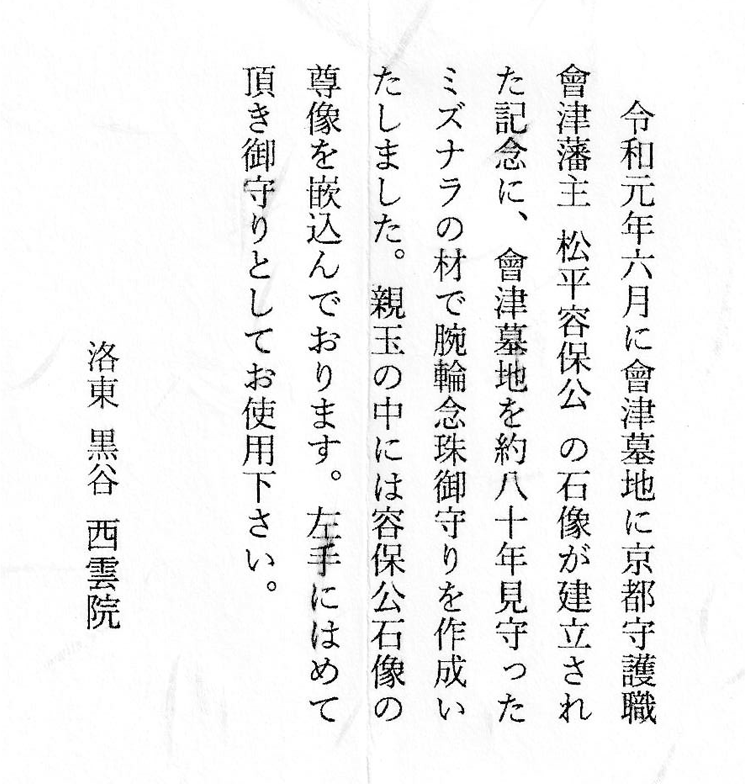 令和元年六月に會津墓地に京都守護職
會津藩主 松平容保公 の石像が建立され
た記念に、會津墓地を約八十年見守った
ミズナラの材で腕輪念珠御守りを作成い
たしました。親玉の中には容保公石像の
尊像を嵌込んでおります。左手にはめて
頂き御守りとしてお使用下さい。
洛東 黒谷 西雲院